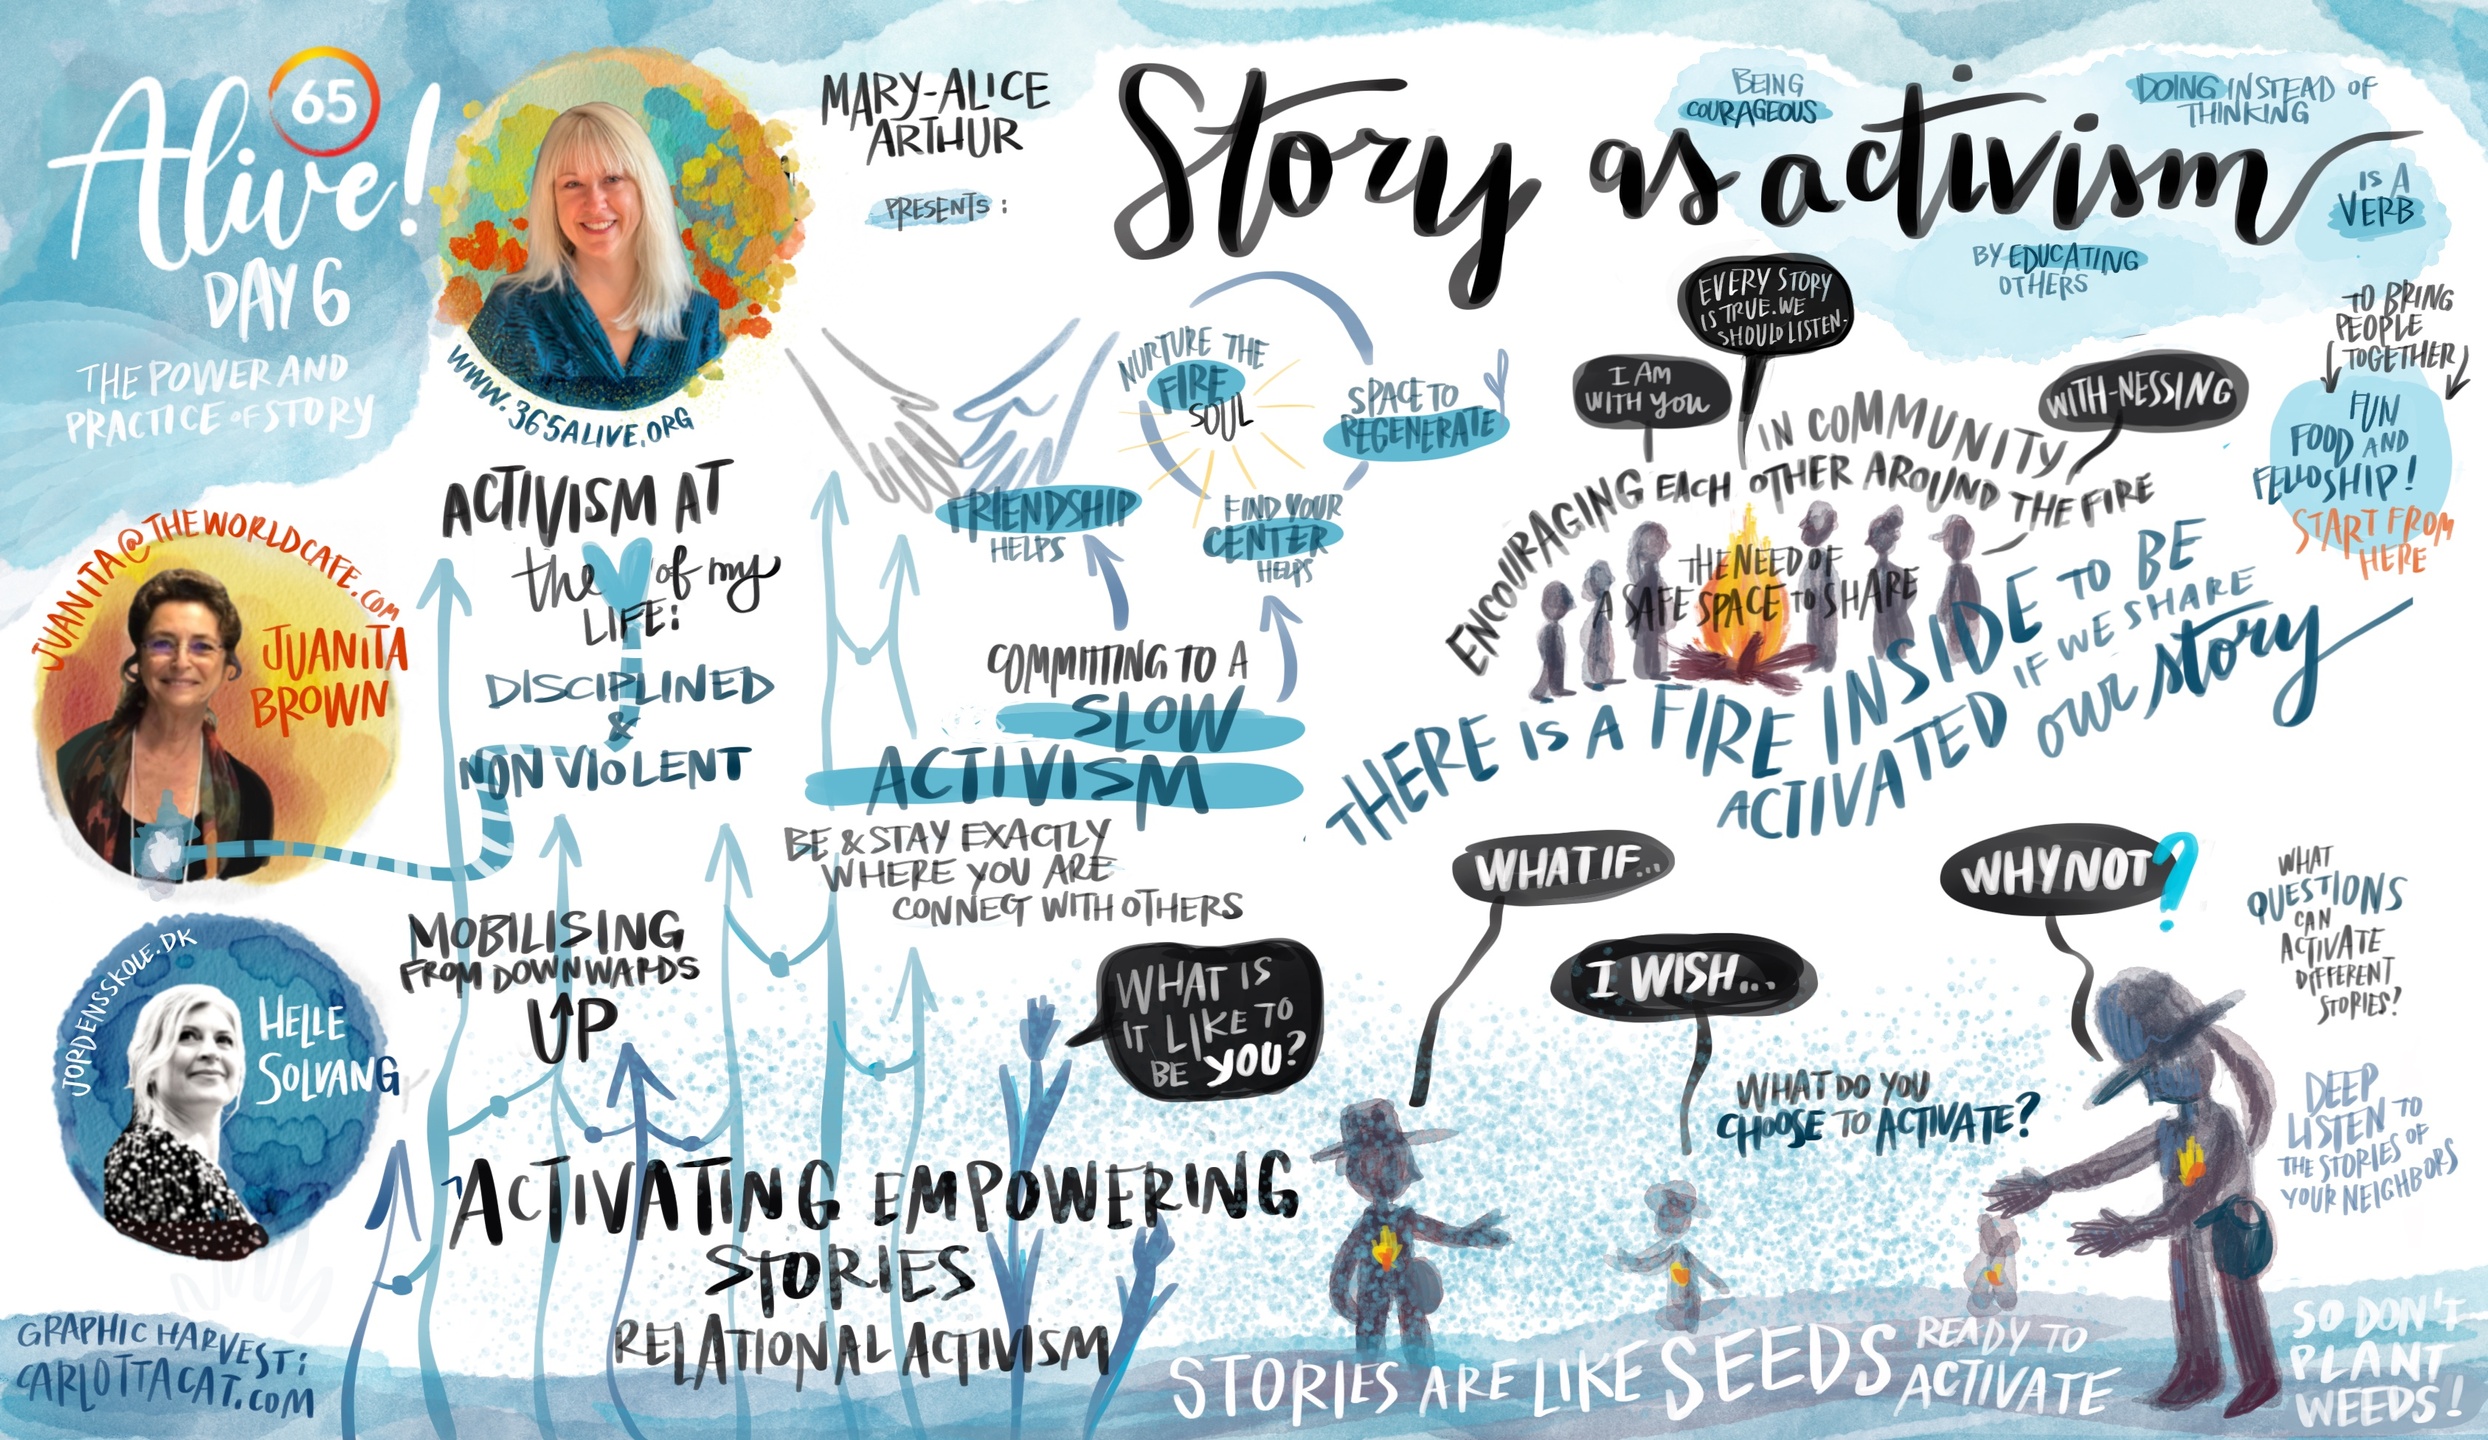 65
Alive!
DAY 6
THE POWER AND
PRACTICE OF STORY
WWW.365ALIVE.ORG
MARY-ALICE
ARTHUR
PRESENTS:
Story as activism
BEING
COURAGEOUS
DOING INSTEAD OF
THINKING
IS A
VERB
BY EDUCATING
OTHERS
TO BRING
PEOPLE
TOGETHER
FUN
FOOD AND
FELLOSHIP!
START FROM
HERE
JUANITA@THEWORLDCAFE.COM
JUANITA
BROWN
JORDENSSKOLE.DK
HELLE
SOLVANG
GRAPHIC HARVEST:
CARLOTTACAT.COM
ACTIVISM AT
the of my
LIFE:
DISCIPLINED
&
NON VIOLENT
MOBILISING
FROM DOWNWARDS
UP
NURTURE THE
FIRE
SOUL
SPACE TO
REGENERATE
FRIENDSHIP
HELPS
FIND YOUR
CENTER
HELPS
COMMITTING TO A
SLOW
ACTIVISM
BE & STAY EXACTLY
WHERE YOU ARE
CONNECT WITH OTHERS
EVERY STORY
IS TRUE. WE
SHOULD LISTEN.
I AM
WITH YOU
WITH-NESSING
IN COMMUNITY
ENCOURAGING EACH OTHER AROUND THE FIRE
THE NEED OF
A SAFE SPACE TO SHARE
THERE IS A FIRE INSIDE TO BE
ACTIVATED IF WE SHARE
OUR story
WHAT IS
IT LIKE TO
BE YOU?
WHAT IF...
I WISH...
WHY NOT?
WHAT
QUESTIONS
CAN
ACTIVATE
DIFFERENT
STORIES?
WHAT DO YOU
CHOOSE TO ACTIVATE?
DEEP
LISTEN TO
THE STORIES OF
YOUR NEIGHBORS
ACTIVATING EMPOWERING
STORIES
RELATIONAL ACTIVISM
STORIES ARE LIKE SEEDS READY TO
ACTIVATE
SO DON'T
PLANT
WEEDS!